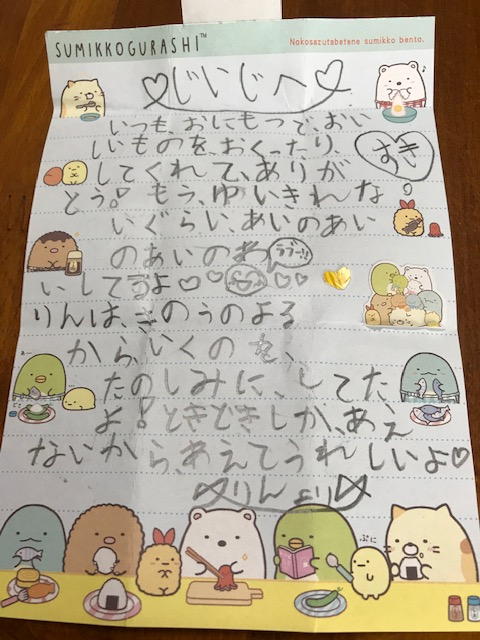 SUMIKKOGURASHI™
Nokosazutabetene sumikko bento.
♡じいじへ♡
いつも、おにもつで、おい
しいものを、おくったり、
してくれて、ありが
とう。もう、ゆいきれな
いぐらい、あいのあい
のあいのあ
ラブー!!
いしてるよ♡♡ ♡♡
すき
りんは、きのうのよる
から、いくのを、
たのしみに、してた
よ!ときどきしか、あえ
ないから、あえてうれしいよ♡
りんより
ぷに